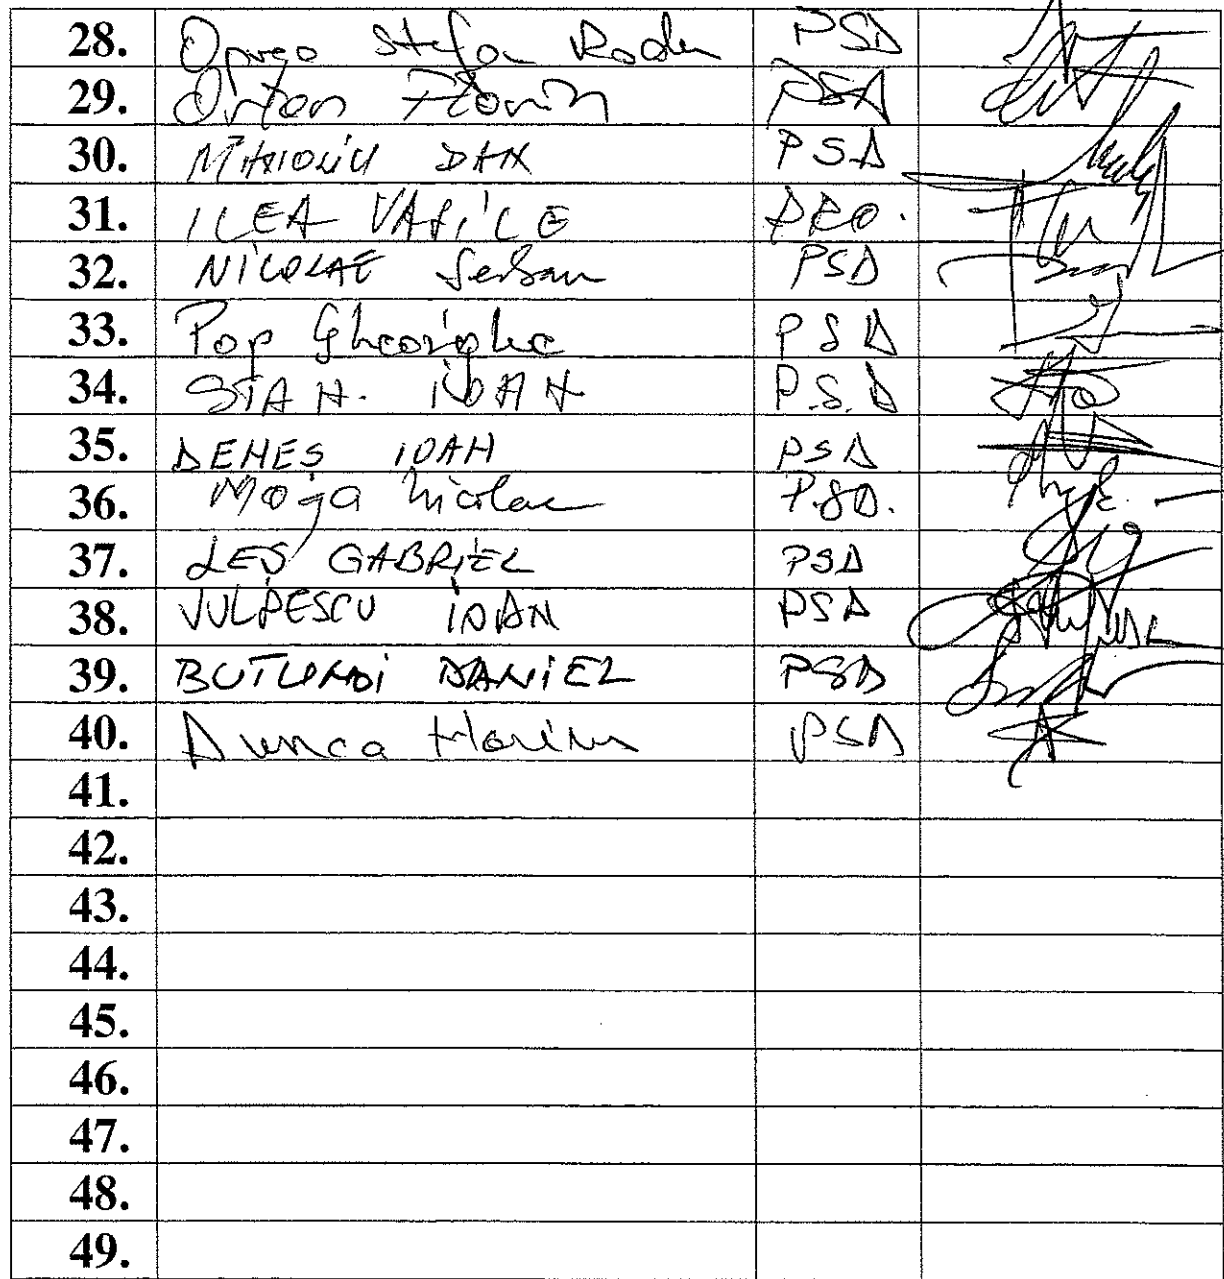 28. Oprea Stefan Radu PSD
29. Florin PSD
30. DAN PSD
31. ILEA VASILE PRO.
32. NICOLAE Serban PSD
33. Pop Gheorghe PSD
34. STAN. IOAN P.S.D
35. DENEȘ IOAN PSD
36. Moga Nicolae P.SD.
37. LEȘ GABRIEL PSD
38. VULPESCU IOAN PSD
39. DANIEL PSD
40. Dunca Marius PSD
41.
42.
43.
44.
45.
46.
47.
48.
49.